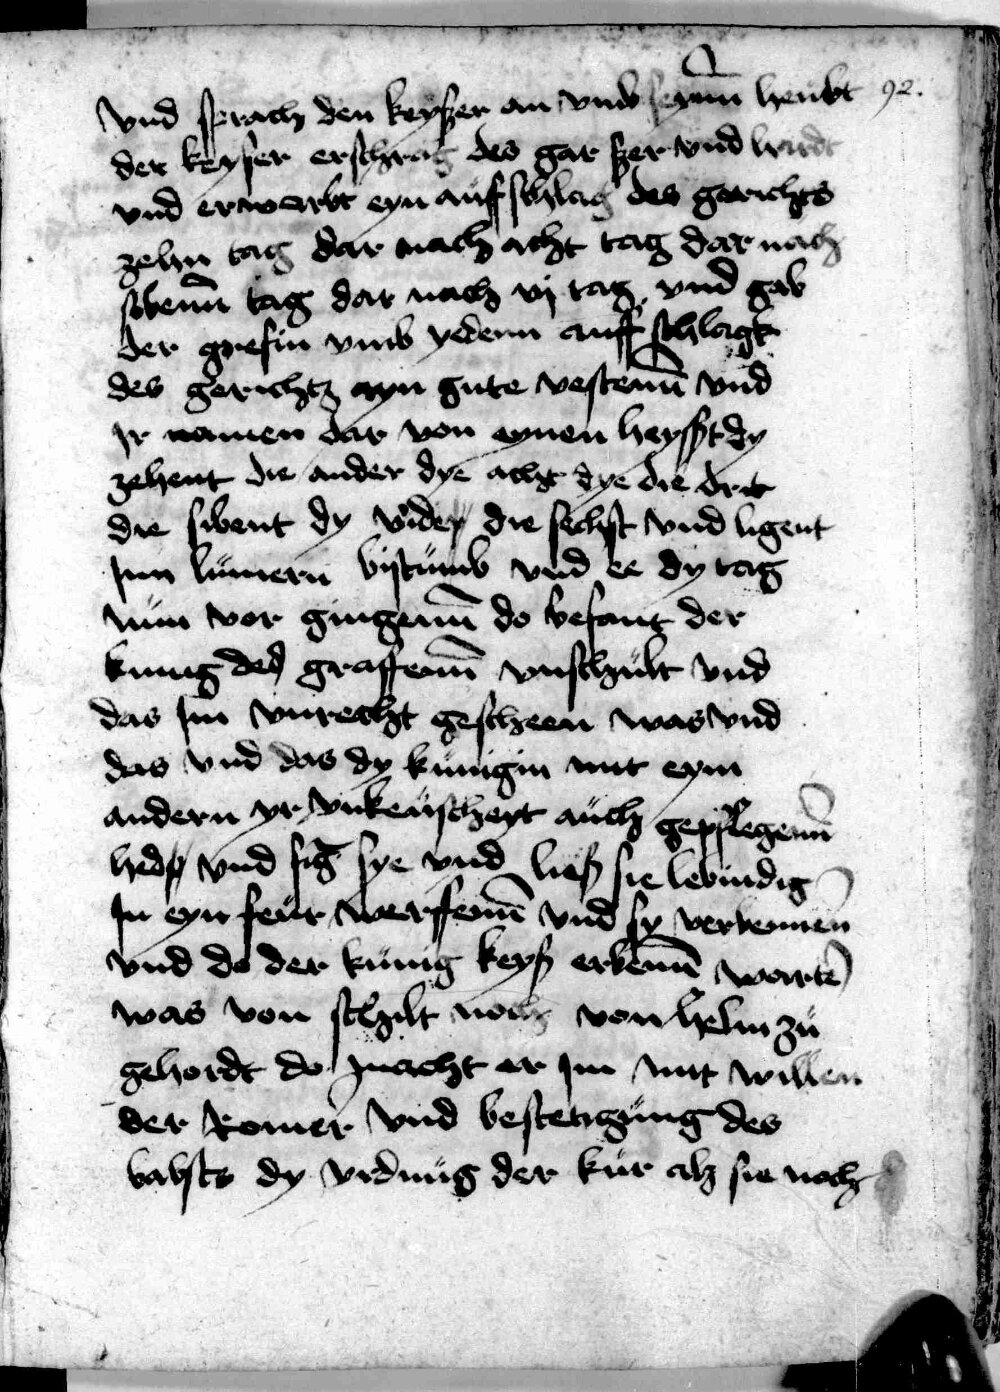 vnd sprach den keyßer an vmb seynn heubt 92.
der keyser erschrag des gar ßer vnd
vnd erwarbt eyn auff schlag des gerichts
zehn tag dar nach acht tag dar nach
sibenn tag dar nach vj tag vnd gab
der grefin vmb yedenn auff schlagk
des gerichtz ayn gute vestenn vnd
Ir namen dar von eynen heysßt dy
zehent die ander dye acht dye die drit
die sibent dy die sechst vnd ligent
Inn lumern bistumb vnd ee dy tag
num vor gingenn do befant der
kunig des graffenn vnschult vnd
das Im vnrecht gescheen was vnd
das vnd das dy kunigin mit eym
andern yr vnkeuscheyt auch gepflegenn
hed vnd fig sye vnd ließ sie lebindig
In eyn feur werffenn vnd sy verbrennen
vnd do der kunig keyß erkenn warte
was von schilt noch von helm zu
gehordt do macht er Im mit willen
der Romer vnd bestetigung des
babsts dy vrdnug der kur alz sie noch